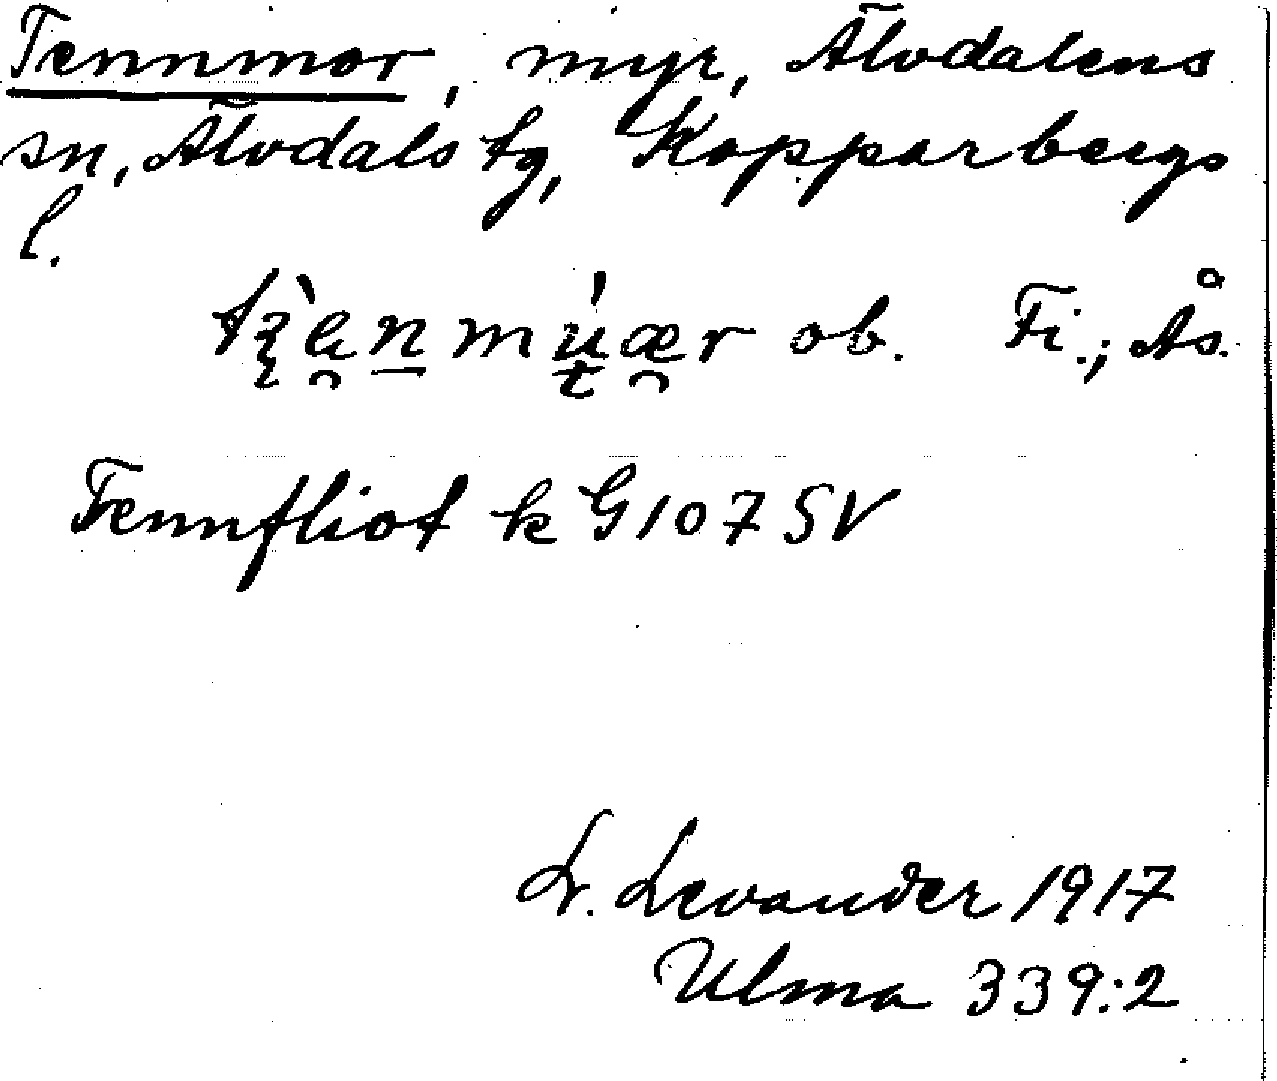 Tennmor, myr, Älvdalens
sn, Älvdals tg, Kopparbergs
l.
ob. Fi.; Ås.
Tennfliot k G107 SV
L. Levander 1917
Ulma 339:2